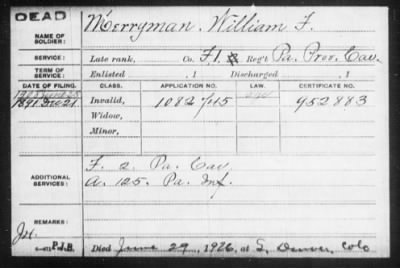 DEAD
NAME OF SOLDIER: Merryman, William F.
SERVICE: Late rank, Co. F, 1, Reg't Pa. Prov. Cav.
TERM OF SERVICE: Enlisted , 1 Discharged , 1
DATE OF FILING. CLASS. APPLICATION NO. LAW. CERTIFICATE NO.
1891 Dec 21 Invalid, 1082745 952883
Widow,
Minor,
ADDITIONAL SERVICES:
F. 2. Pa. Cav
A. 125. Pa. Inf.
REMARKS:
P.I.B. Died June 29, 1926, at Denver, Colo